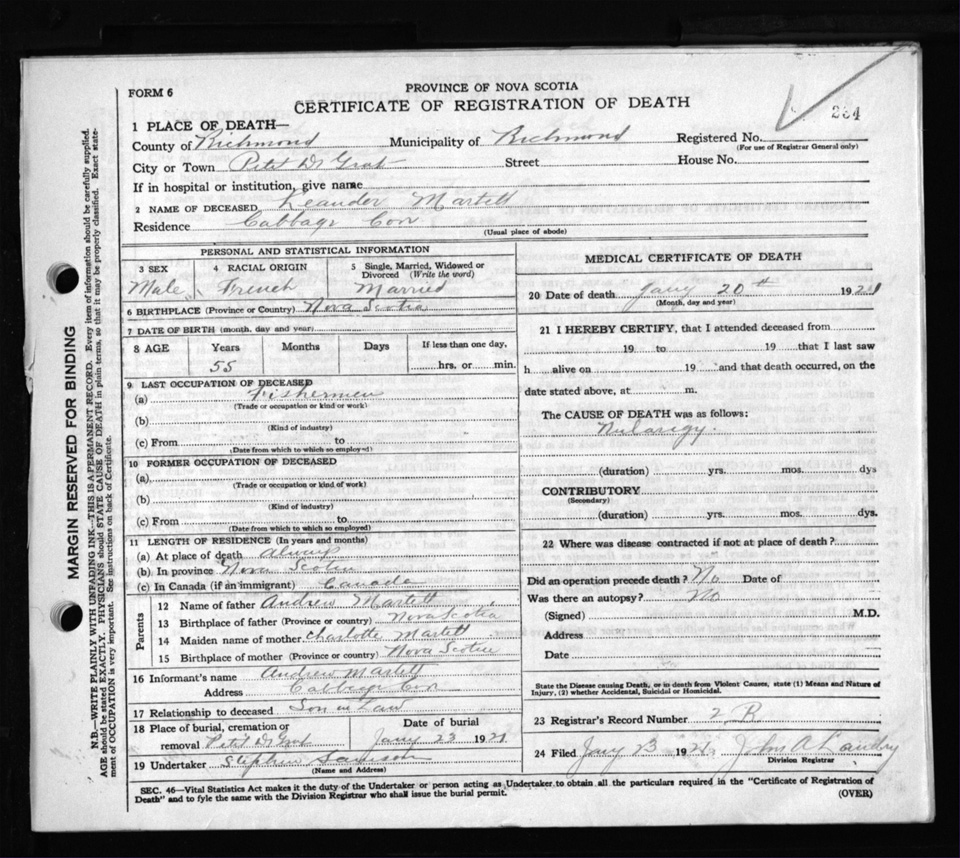 PROVINCE OF NOVA SCOTIA
FORM 6
CERTIFICATE OF REGISTRATION OF DEATH
234
1 PLACE OF DEATH—
County of Richmond Municipality of Richmond Registered No.
(For use of Registrar General only)
City or Town Petit D Grat Street House No.
If in hospital or institution, give name
2 NAME OF DECEASED Leander Martell
Residence Cabbage Cov
(Usual place of abode)
PERSONAL AND STATISTICAL INFORMATION
3 SEX 4 RACIAL ORIGIN 5 Single, Married, Widowed or Divorced (Write the word)
Male French Married
6 BIRTHPLACE (Province or Country) Nova Scotia
7 DATE OF BIRTH (month, day and year)
8 AGE Years Months Days If less than one day,
55 hrs. or min.
9 LAST OCCUPATION OF DECEASED
(a) Fishermen
(Trade or occupation or kind or work)
(b)
(Kind of industry)
(c) From to
(Date from which to which so employed)
10 FORMER OCCUPATION OF DECEASED
(a)
(Trade or occupation or kind of work)
(b)
(Kind of industry)
(c) From to
(Date from which to which so employed)
11 LENGTH OF RESIDENCE (In years and months)
(a) At place of death always
(b) In province Nova Scotia
(c) In Canada (if an immigrant) Canada
Parents
12 Name of father Andrew Martell
13 Birthplace of father (Province or country) Nova Scotia
14 Maiden name of mother Charlotte Martell
15 Birthplace of mother (Province or country) Nova Scotia
16 Informant's name Andrew Martell
Address Cabbage Cov
17 Relationship to deceased Son in Law
18 Place of burial, cremation or Date of burial
removal Petit D Grat Jany 23 1921
19 Undertaker Stephen Samson
(Name and Address)
MEDICAL CERTIFICATE OF DEATH
20 Date of death Jany 20th 1921
(Month, day and year)
21 I HEREBY CERTIFY, that I attended deceased from
19 to 19 that I last saw
h alive on 19 and that death occurred, on the
date stated above, at m.
The CAUSE OF DEATH was as follows:
(duration) yrs. mos. dys
CONTRIBUTORY
(Secondary)
(duration) yrs. mos. dys.
22 Where was disease contracted if not at place of death?
Did an operation precede death? No Date of
Was there an autopsy? No
(Signed) M.D.
Address
Date
State the Disease causing Death, or in death from Violent Causes, state (1) Means and Nature of
Injury, (2) whether Accidental, Suicidal or Homicidal.
23 Registrar's Record Number 2 B
24 Filed Jany 23 1921 John A Landry
Division Registrar
SEC. 46—Vital Statistics Act makes it the duty of the Undertaker or person acting as Undertaker to obtain all the particulars required in the "Certificate of Registration of
Death" and to fyle the same with the Division Registrar who shall issue the burial permit. (OVER)
MARGIN RESERVED FOR BINDING
N.B.—WRITE PLAINLY WITH UNFADING INK—THIS IS A PERMANENT RECORD. Every item of information should be carefully supplied.
AGE should be stated EXACTLY. PHYSICIANS should STATE CAUSE OF DEATH in plain terms, so that it may be properly classified. Exact state-
ment of OCCUPATION is very important. See instructions on back of Certificate.